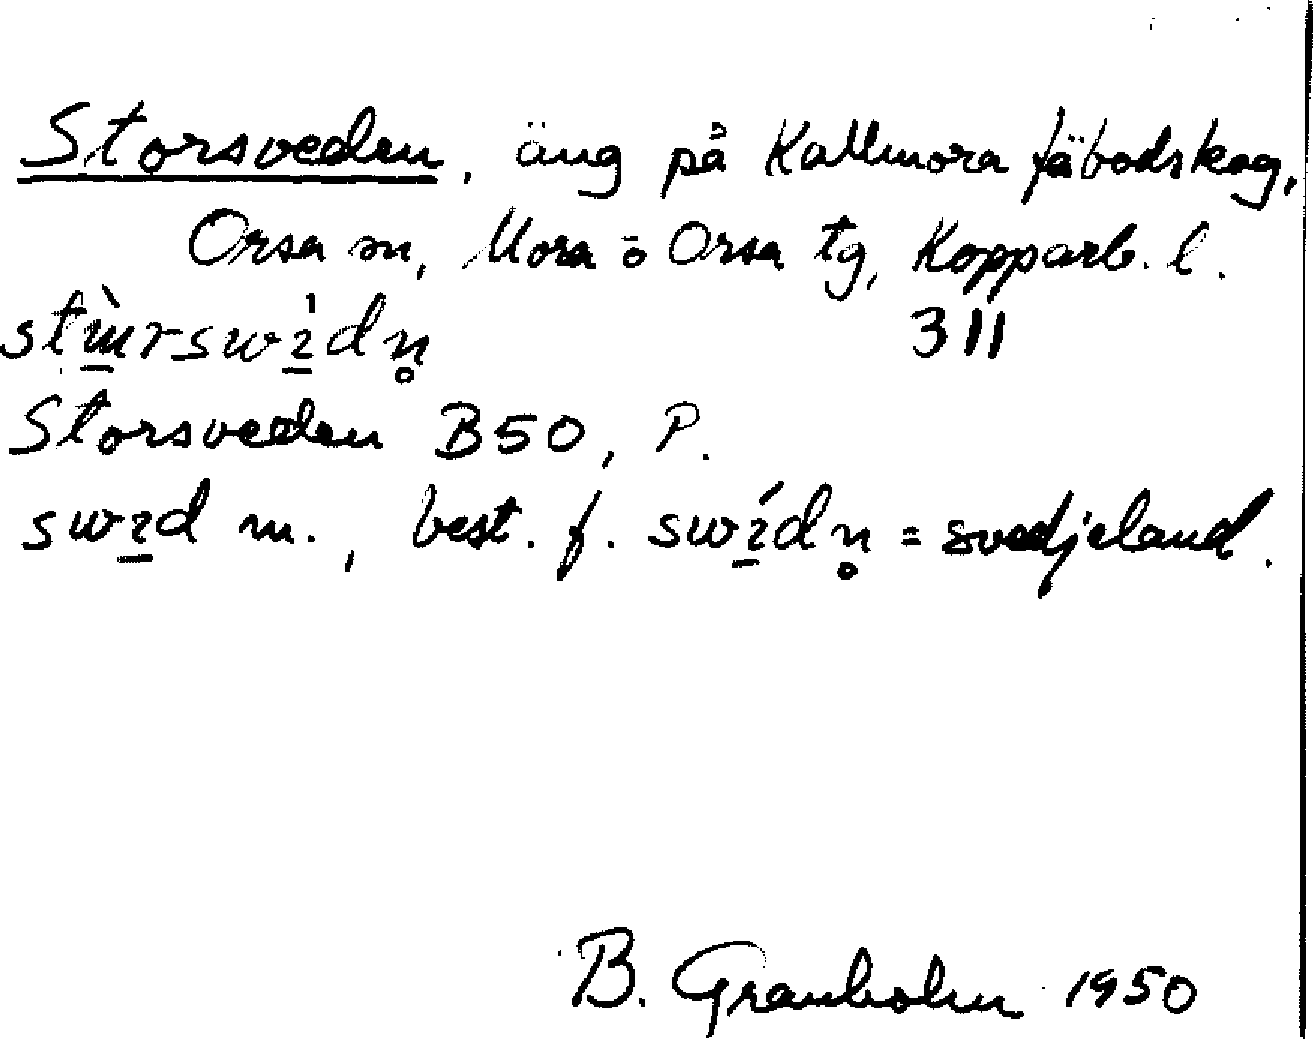 Storsveden, äng på Kallmora fäbodskog,
Orsa sn, Mora o Orsa tg, Kopparb. l.
stɯ̱̀rswı̱̍dn̥ 311
Storsveden B50, P.
swı̱d m., best. f. swı̱́dn̥ = svedjeland.
B. Granholm 1950